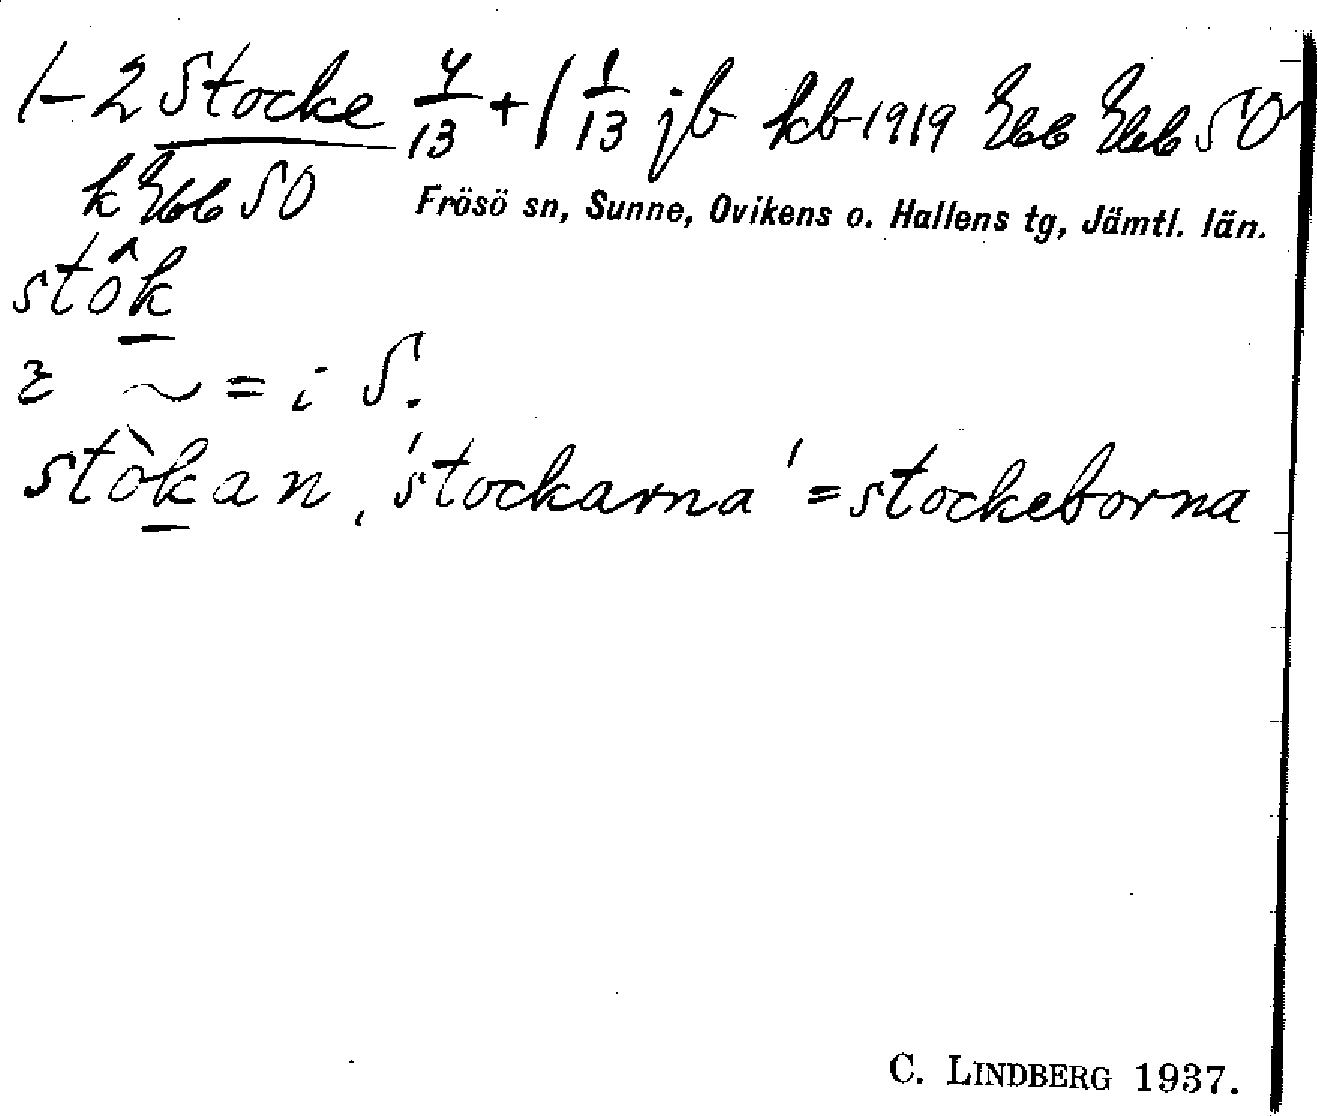 1-2 Stocke 4/13 + 1 1/13 jb kb 1919
k
Frösö sn, Sunne, Ovikens o. Hallens tg, Jämtl. län.
stôk
~ = i S.
stòkan, 'stockarna' = stockeborna
C. LINDBERG 1937.